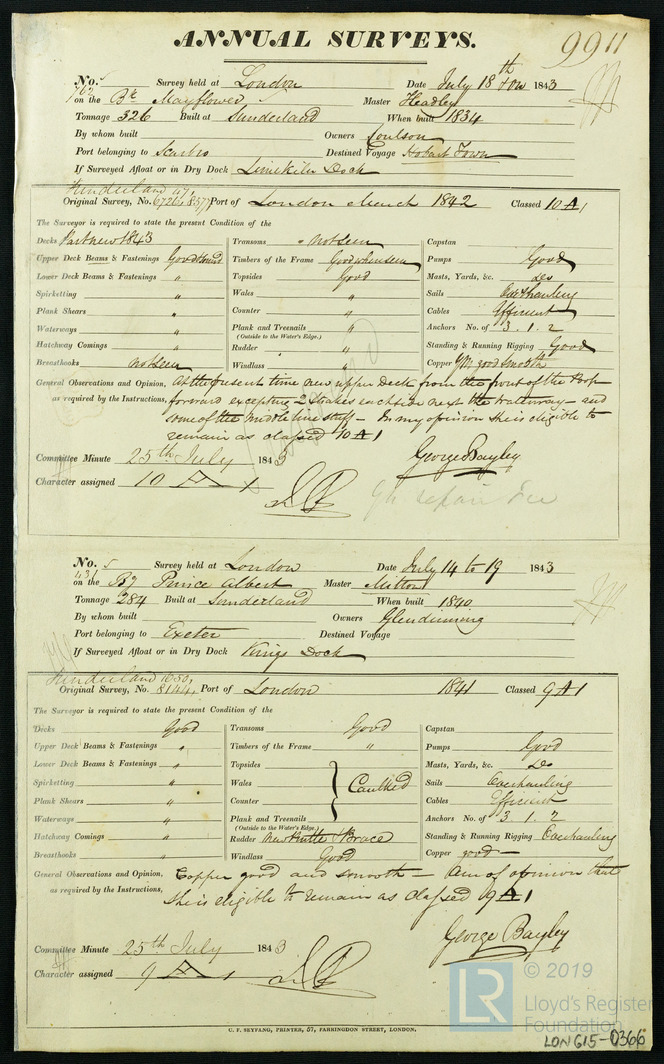 ANNUAL SURVEYS.
9911
No. 5 Survey held at London Date July 18th 1843
762 on the Bk Mayflower Master Headley
Tonnage 326 Built at Sunderland When built 1834
By whom built Owners Coulson
Port belonging to Scarbro Destined Voyage Hobart Town
If Surveyed Afloat or in Dry Dock Limekiln Dock
Sunderland 47,
Original Survey, No. Port of London March 1842 Classed 10 A 1
The Surveyor is required to state the present Condition of the
Decks Part new 1843 Transoms Not seen Capstan
Upper Deck Beams & Fastenings Good & Sound Timbers of the Frame Good when seen Pumps Good
Lower Deck Beams & Fastenings " Topsides Good Masts, Yards, &c. Do
Spirketting " Wales " Sails Overhauling
Plank Shears " Counter " Cables Efficient
Waterways " Plank and Treenails " Anchors No. of 3.1.2
(Outside to the Water's Edge.)
Hatchway Comings " Rudder " Standing & Running Rigging Good
Breasthooks not seen Windlass " Copper YM good smooth
General Observations and Opinion, At the present time new upper Deck from the front of the Poop
as required by the Instructions, forward excepting 2 Strakes each side next the waterway - and
some of the middle line stuff - In my opinion she is eligible to
remain as classed 10 A 1
Committee Minute 25th July 1843 George Bayley
Character assigned 10 A 1
No. 5 Survey held at London Date July 14 to 19 1843
431 on the Bg Prince Albert Master Mitton
Tonnage 284 Built at Sunderland When built 1840
By whom built Owners Glendinning
Port belonging to Exeter Destined Voyage
If Surveyed Afloat or in Dry Dock Kings Dock
Sunderland 1650,
Original Survey, No. 8144, Port of London 1841 Classed 9 A 1
The Surveyor is required to state the present Condition of the
Decks Good Transoms Good Capstan
Upper Deck Beams & Fastenings " Timbers of the Frame " Pumps Good
Lower Deck Beams & Fastenings " Topsides Masts, Yards, &c. Do
Spirketting " Wales Caulked Sails Overhauling
Plank Shears " Counter Cables Efficient
Waterways " Plank and Treenails Anchors No. of 3.1.2
(Outside to the Water's Edge.)
Hatchway Comings " Rudder Brace Standing & Running Rigging Overhauling
Breasthooks " Windlass Good Copper good
General Observations and Opinion, Copper good and smooth - Am of opinion that
as required by the Instructions, she is eligible to remain as classed 9 A 1
George Bayley
Committee Minute 25th July 1843
Character assigned 9 A 1
© 2019
LR
Lloyd's Register
Foundation
C. F. SEYFANG, PRINTER, 57, FARRINGDON STREET, LONDON.
LON615-0366